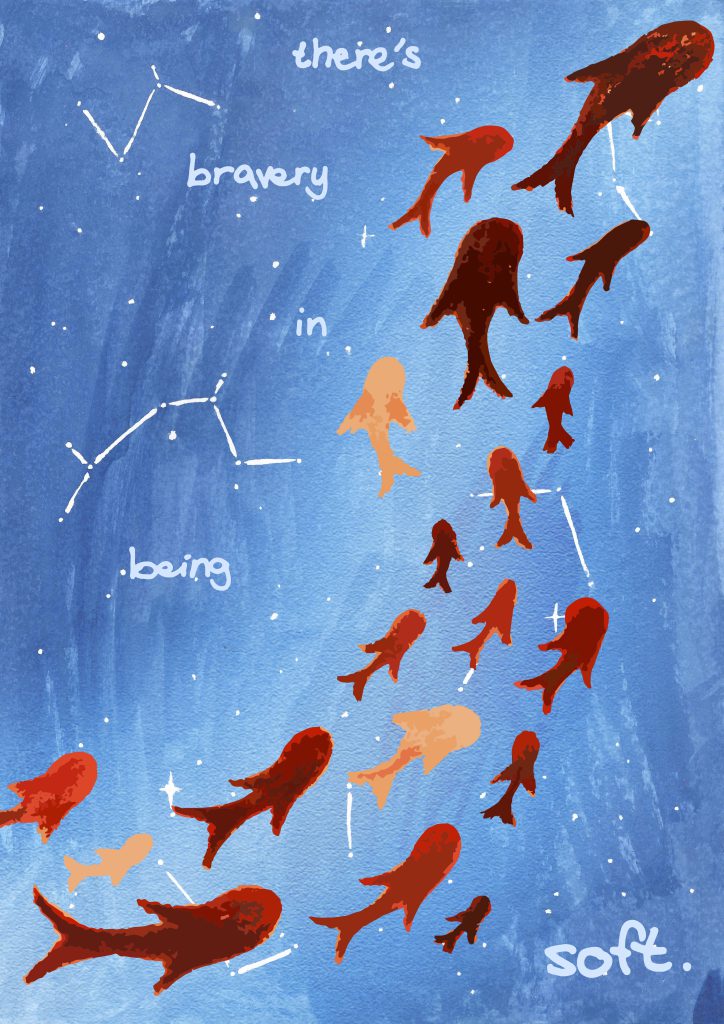 there's
bravery
in
being
soft.